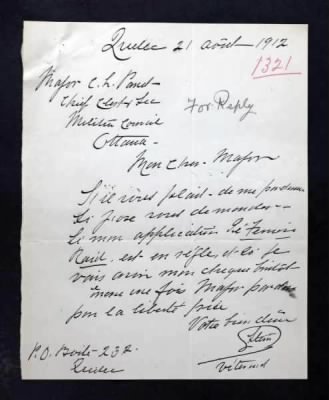 Quebec 21 août 1912
1321
Major C. L. Panet
Chief Clerk & Sec
Militia Council
Ottawa
For Reply
Mon cher Major
S'il vous plait de me pardonner
si j'ose vous demander
si mon application de Fenian
Raid est en règles et si je
vais avoir mon cheque bientot
encore une fois Major pardon
pour la liberté prise
Votre bien
vétéran
P.O. Boite 232
Quebec